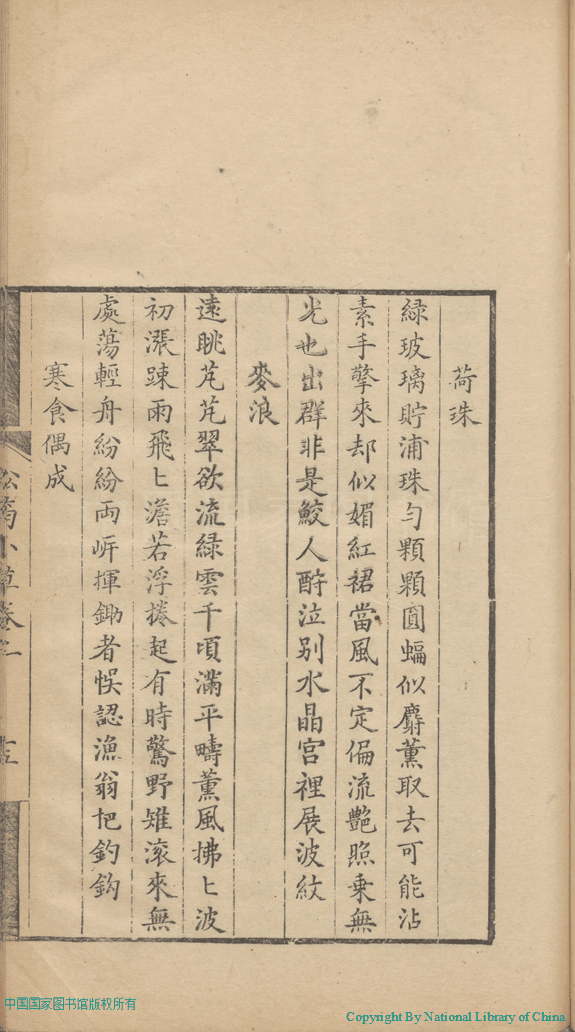 荷珠
綠玻璃貯浦珠勻顆顆圓蝠似麝薰取去可能沾
素手擎來却似媚紅裙當風不定偏流艷照乗無
光也出群非是鮫人酧泣别水晶宫裡展波紋
麥浪
遠眺芃芃翠欲流綠雲千頃滿平疇薰風拂〻波
初漲踈雨飛〻澹若浮捲起有時驚野雉滚來無
處蕩輕舟紛紛兩岍揮鋤者悞認漁翁把釣鈎
寒食偶成
松菊小草卷二
中国国家图书馆版权所有
Copyright By National Library of China